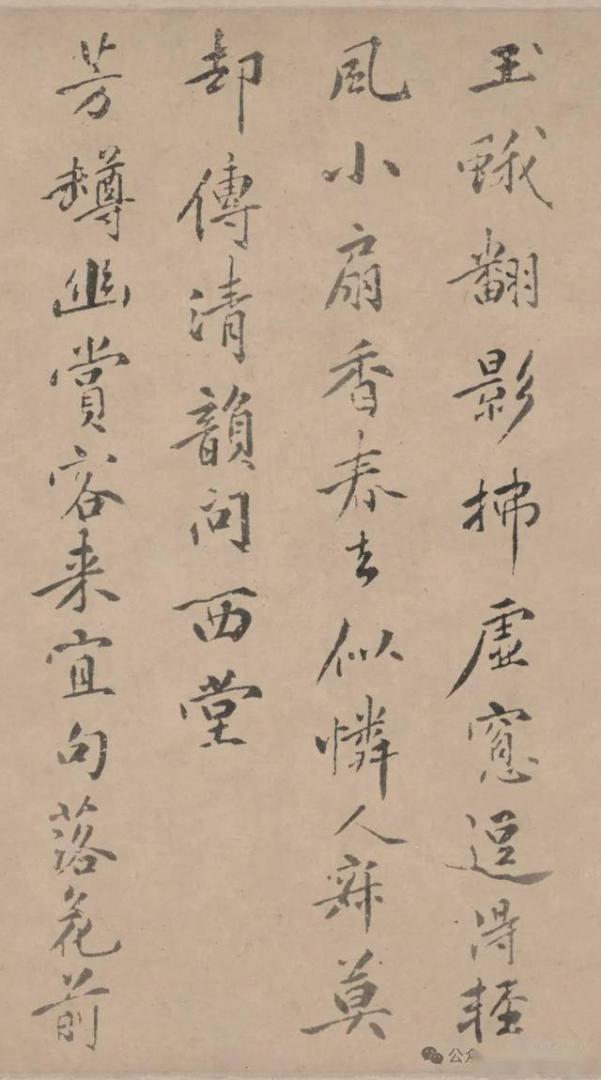 玉蛾翻影拂虛窻逗得輕
風小扇香春去似憐人寂莫
却傳清韻問西堂
芳罇幽賞客来宜句落花前
公众